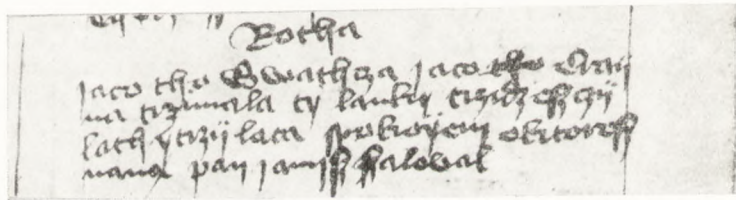 Rotha
jaco tho Swathcza jaco Cray
na trzimala ty lanky trzidzesczy
lath y trzy lata spokoyem oktoresz
nanø pan janusz szaloval